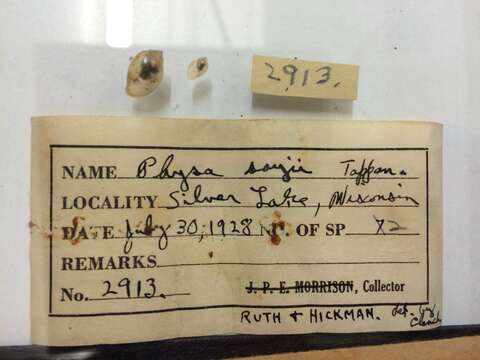 2913.
NAME Physa sayii Tappan.
LOCALITY Silver Lake, Wisconsin
DATE July 30, 1928 NO. OF SP 72
REMARKS
No. 2913. J. P. E. MORRISON, Collector
RUTH & HICKMAN. det. by
Clench